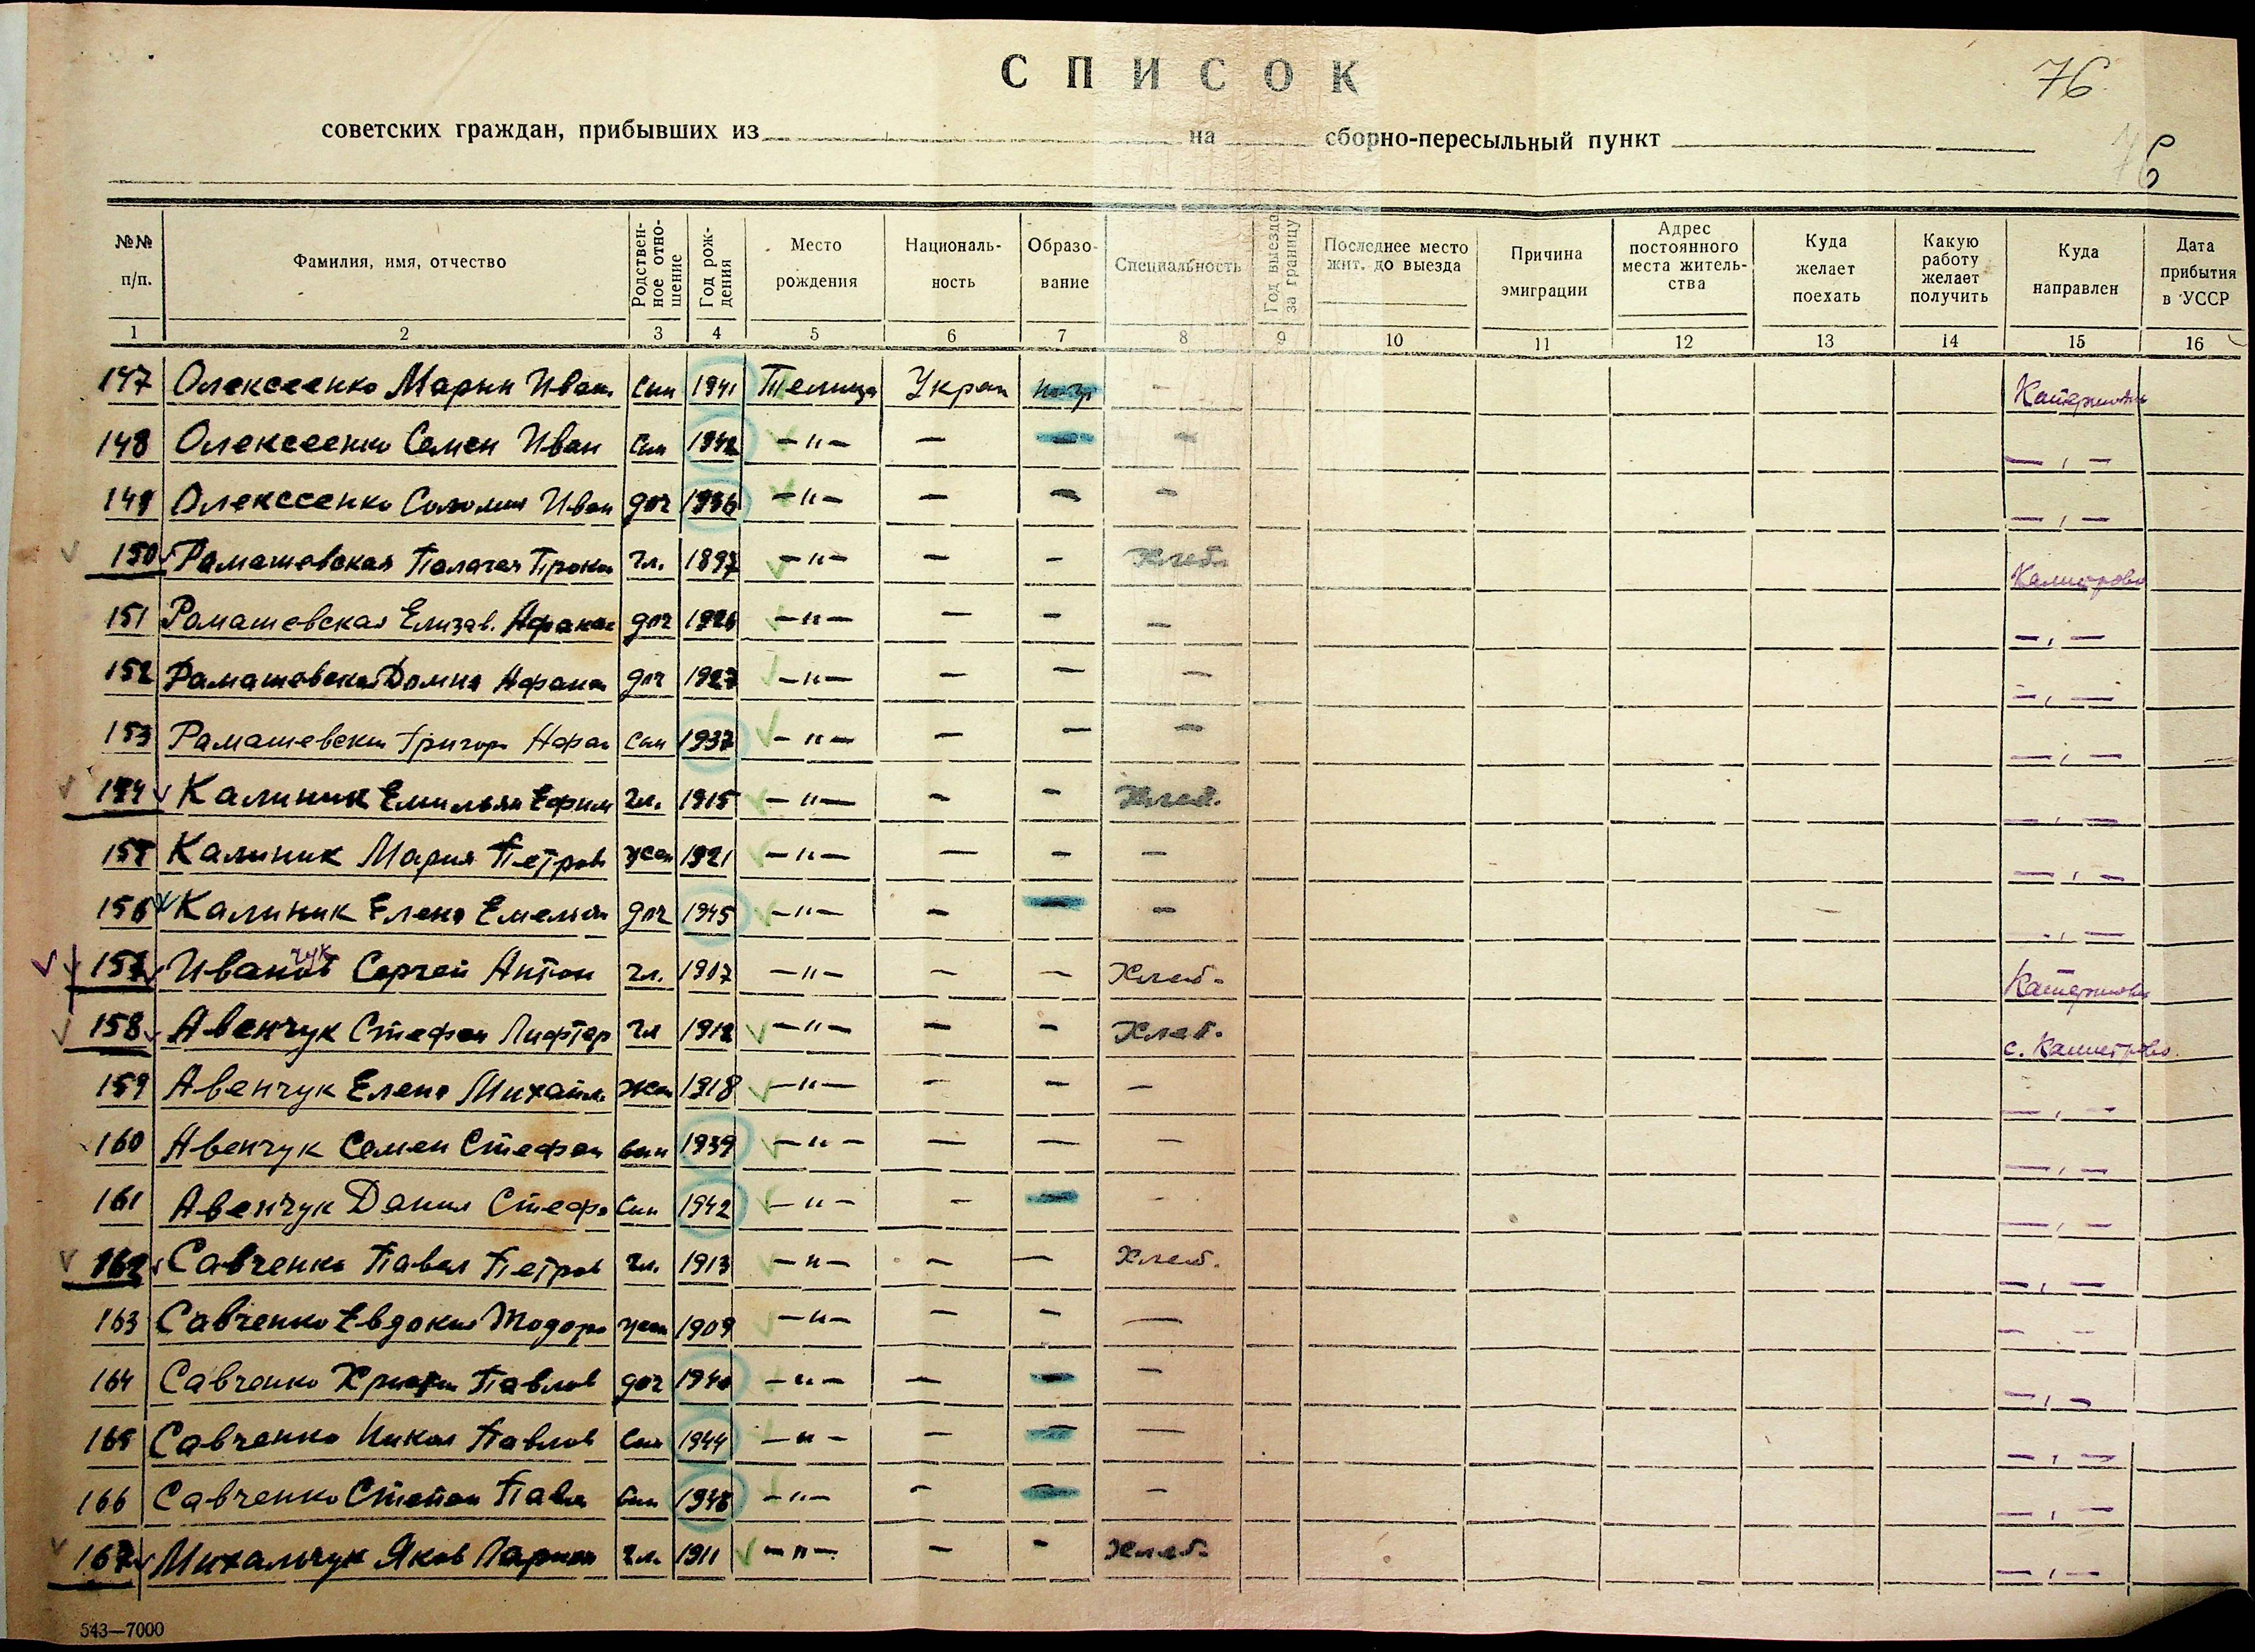 76
СПИСОК
советских граждан, прибывших из на сборно-пересыльный пункт
76
№№ п/п. Фамилия, имя, отчество Родствен-ное отно-шение Год рож-дения Место рождения Националь-ность Образо-вание Специальность Год выезда за границу Последнее место жит. до выезда Причина эмиграции Адрес постоянного места житель-ства Куда желает поехать Какую работу желает получить Куда направлен Дата прибытия в УССР
1 2 3 4 5 6 7 8 9 10 11 12 13 14 15 16
147 Олексеенко Марин Иван. сын 1941 Телица Украи –
148 Олексеенко Семен Иван сын 1942 –"– – – – –,–
149 Олекссенко Соломия Иван доч 1936 –"– – – – –,–
150 Рамашевская Палагея Проко гл. 1897 –"– – – Хлеб.
151 Рамашевская Елизав. Афанас доч 1926 –"– – – – –,–
152 Рамашевская Домна Афана доч 1927 –"– – – – –,–
153 Рамашевски Григори Афан сын 1937 –"– – – – –,–
154 Калиник Емильян Ефим гл. 1915 –"– – – Хлеб. –,–
155 Калиник Мария Петров жен 1921 –"– – – – –,–
156 Калиник Елена Емельян доч 1945 –"– – – – –,–
чук
157 Иванов Сергей Антон гл. 1917 –"– – – Хлеб.
158 Авенчук Стефан Лифтер гл 1912 –"– – – Хлеб. с.
159 Авенчук Елена Михайл. жен 1918 –"– – – – –,–
160 Авенчук Семен Стефан сын 1939 –"– – – – –,–
161 Авенчук Данил Стефа сын 1942 –"– – – – –,–
162 Савченко Павел Петров гл. 1913 –"– – – Хлеб. –,–
163 Савченко Евдокия Тодоро жен 1909 –"– – – – – –
164 Савченко Павлов доч 1940 –"– – – – –,–
165 Савченко Никол Павлов сын 1944 –"– – – – –,–
166 Савченко Степан Павл сын 1948 –"– – – – –,–
167 Михальчук Яков Ларион гл. 1911 –"– – – Хлеб. –,–
543—7000